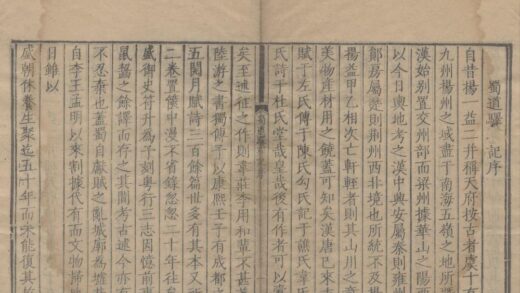 蜀道驛 記序
自昔揚一益二并稱天府按古者慶十有
九州揚州之域盡于南海五嶺之地所
漢始別置交州部而梁州據華山之陽西
以今日輿地考之漢中興安屬秦則雍州
鄖房屬楚則荊州西非境也所統不及
揚益甲乙相次亡軒輊者則其山川之
美物產材用之饒蓋可知矣漢唐已來
賦于左氏傳于陳氏勾氏記于譙氏韋氏
氏詩于杜氏堂哉皇哉後有作者可以
蜀道驛
矣至述征之作則韋莊李用和輩不甚
陸游之書獨傳予以康熙壬子有成都
五閱月賦詩三百餘篇世多有其本又
二卷置篋中漫不省錄忽忽二十年往矣
盛御史符升爲予刻粤行三志因憶前
鼠蠹之餘譯而存之其間考古述今亦
不忍棄也蓋蜀自獻賊之亂城郭為墟
自李王孟明以來割據代有而文物掃地
日雖以
盛朝休養生聚迄五十年而未能復其